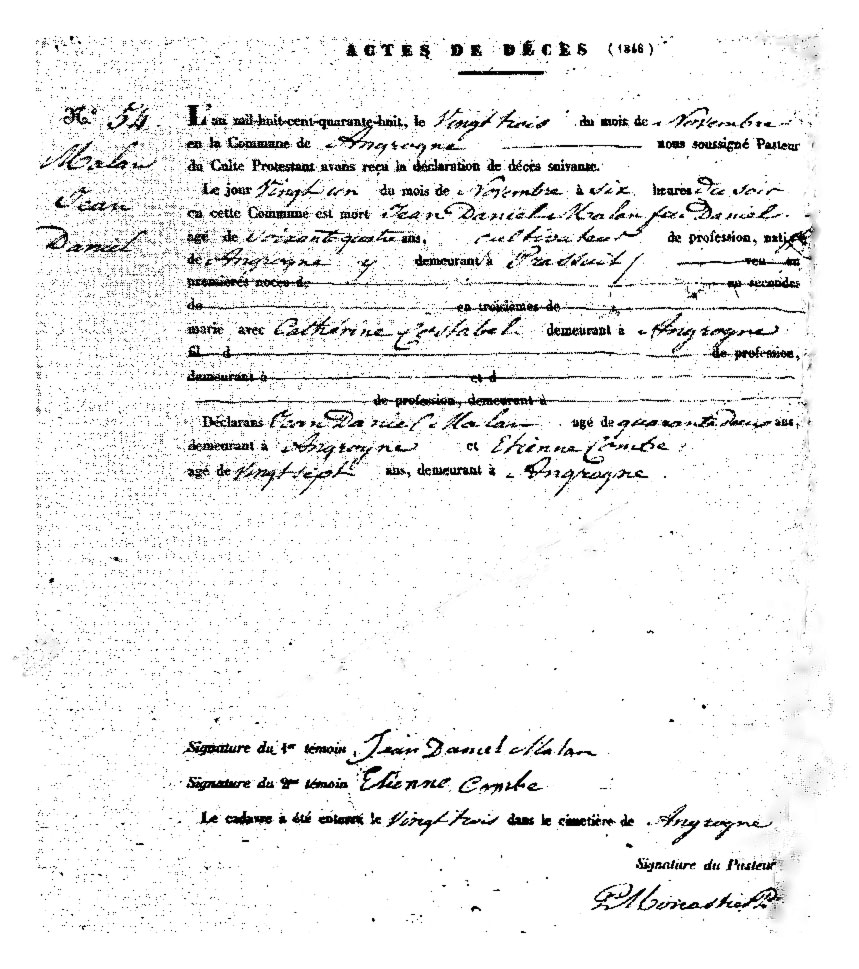 ACTES DE DÉCÈS (1848)
N° 54
Malan
Jean
Daniel
L'an mil-huit-cent-quarante-huit, le Vingt trois du mois de Novembre
en la Commune de Angrogne nous soussigné Pasteur
du Culte Protestant avons reçu la déclaration de décès suivante.
Le jour Vingt un du mois de Novembre à six heures du soir
en cette Commune est mort Jean Daniel Malan feu Daniel
agé de soixante quatre ans, cultivateur de profession, natif
de Angrogne y demeurant à Prassuit veu en
premières noces de en secondes
de en troisièmes de
marié avec Cathérine Costabel demeurant à Angrogne
fil d de profession,
demeurant à et d
de profession, demeurant à
Déclarans Jean Daniel Malan agé de quarante deux ans,
demeurant à Angrogne et Etienne Combe
agé de Vingt sept ans, demeurant à Angrogne.
Signature du 1er témoin Jean Daniel Malan
Signature du 2me témoin Etienne Combe
Le cadavre à été enterré le Vingt trois dans le cimetière de Angrogne
Signature du Pasteur
P. Monastier P.